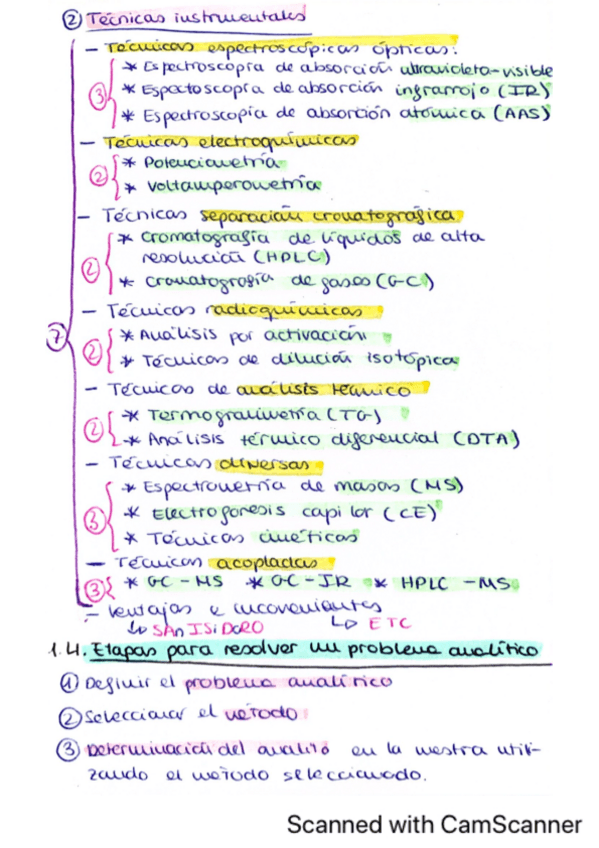 ② Técnicas instrumentales
- Técnicas espectroscópicas ópticas:
* Espectroscopía de absorción ultravioleta-visible
③ * Espectoscopía de absorción infrarrojo (IR)
* Espectroscopía de absorción atómica (AAS)
- Técnicas electroquímicas
② * Potenciometría
* Voltamperometría
- Técnicas separación cromatográfica
* Cromatografía de líquidos de alta
② resolución (HPLC)
* Cromatografía de gases (GC)
- Técnicas radioquímicas
⑦ * Análisis por activación
② * Técnicas de dilución isotópica
- Técnicas de análisis térmico
② * Termogravimetría (TG)
* Análisis térmico diferencial (DTA)
- Técnicas diversas
* Espectrometría de masas (MS)
③ * Electroforesis capilar (CE)
* Técnicas cinéticas
- Técnicas acopladas
③ * GC-MS * GC-IR * HPLC-MS
- Ventajas e inconvenientes
↳ SAn ISiDORO ↳ ETC
1.4. Etapas para resolver un problema analítico
① Definir el problema analítico
② Seleccionar el método
③ Determinación del analito en la muestra utili-
zando el método seleccionado.
Scanned with CamScanner